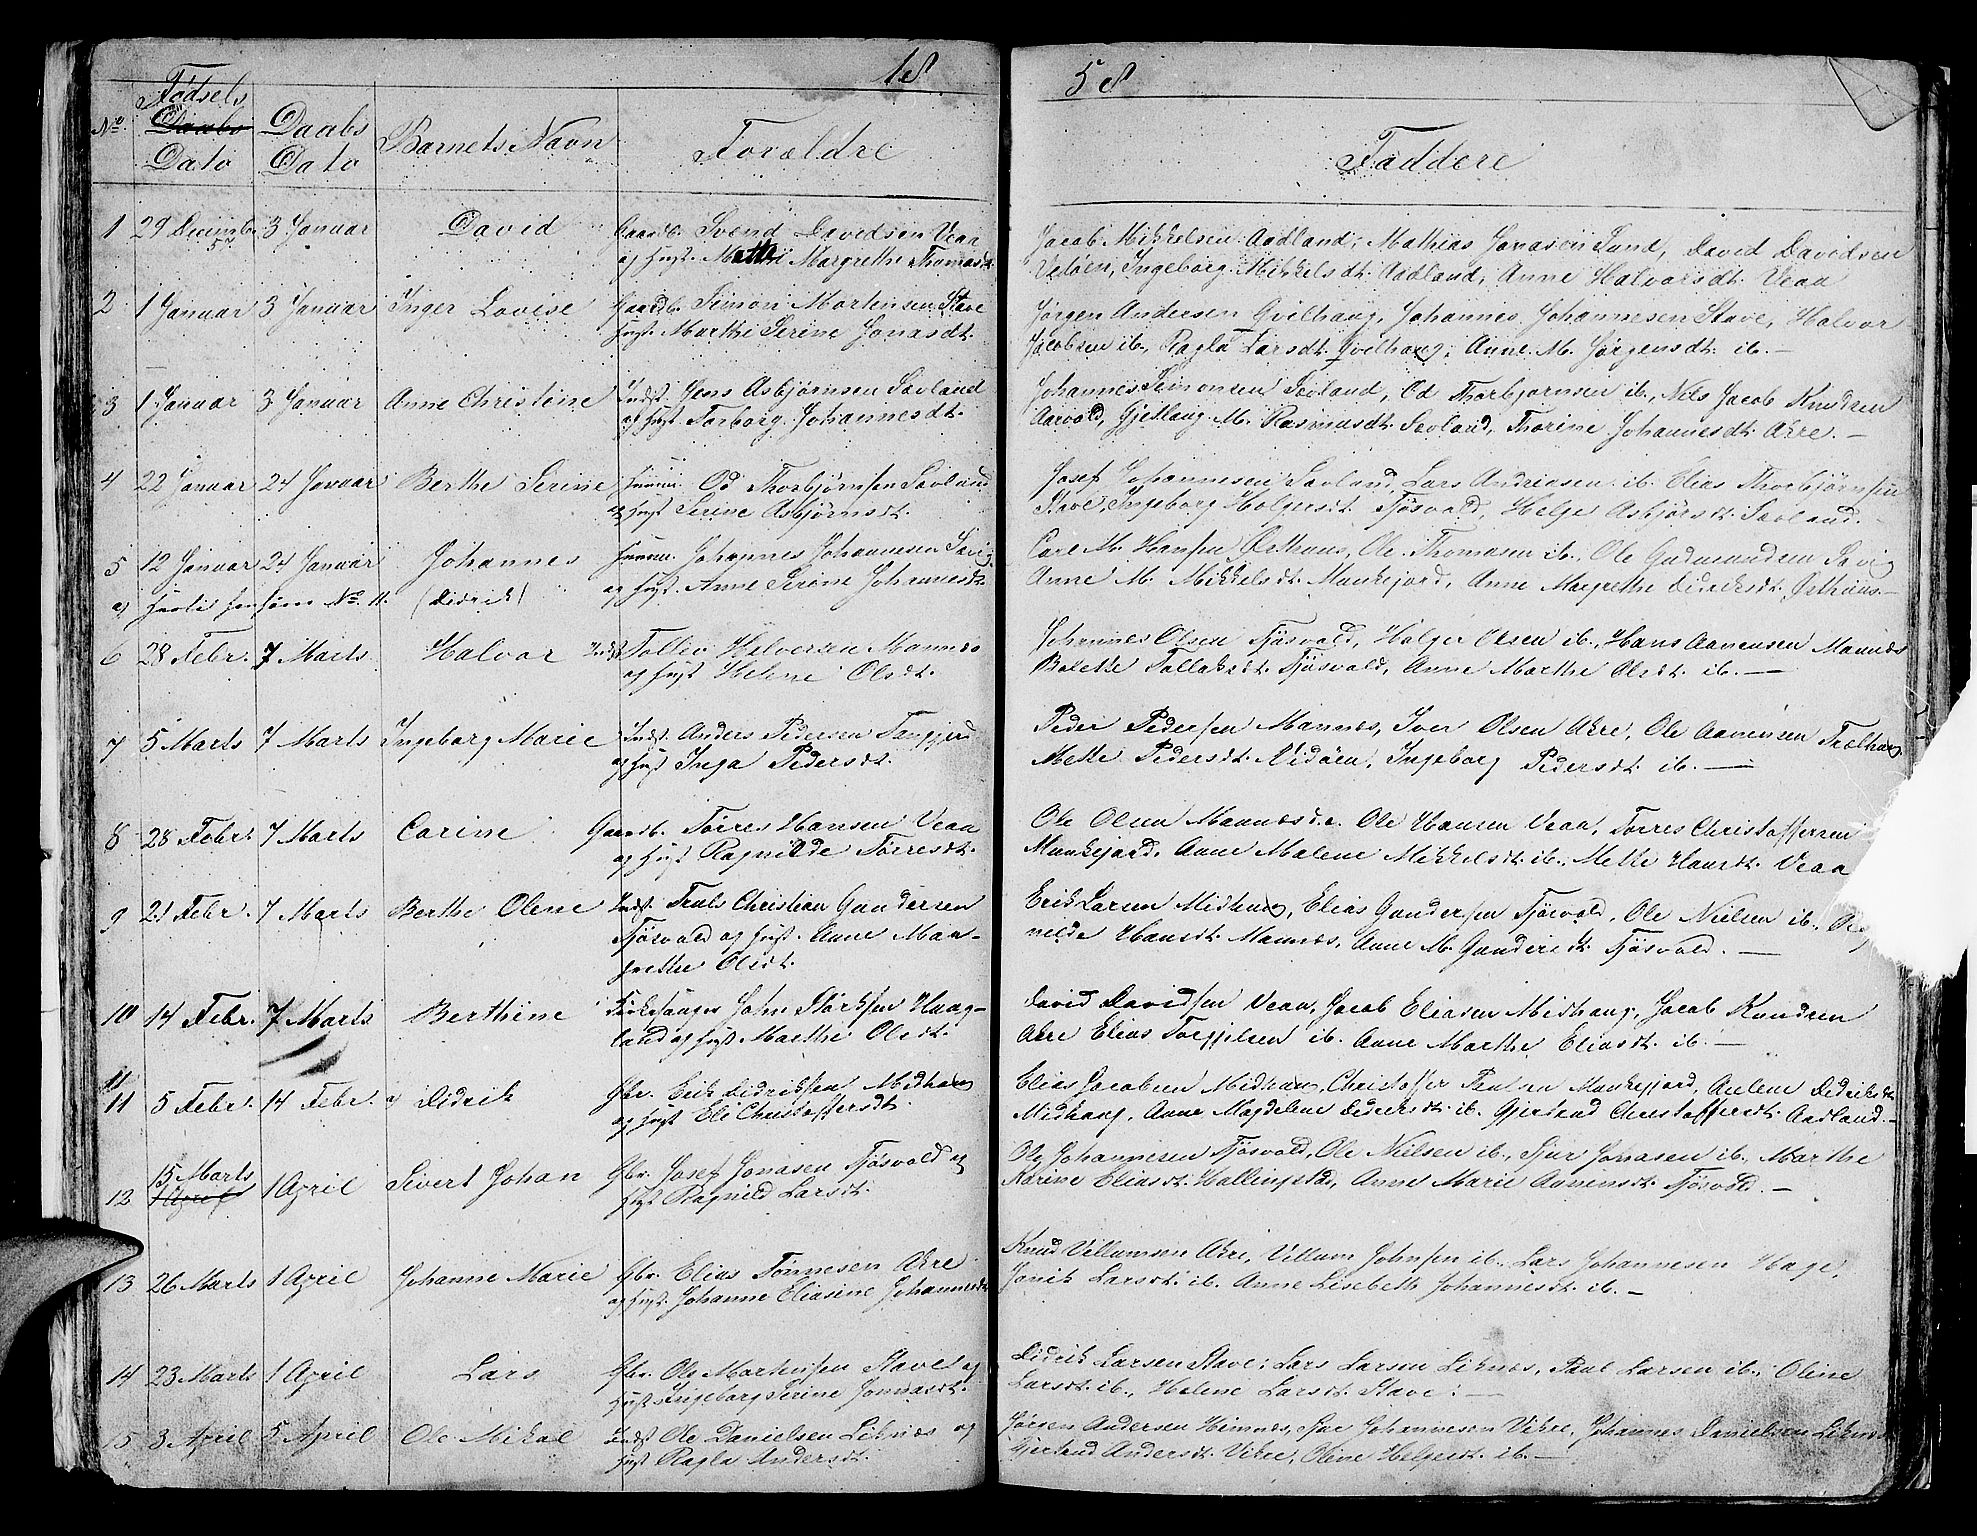 18
58
No
Fødsels
Daabs
Dato
Daabs
Dato
Barnets Navn
Forældre
Faddere
1 29 Decemb. 57 3 Januar David Gaardb. Svend Davidsen Veaa
og Hust. Mette Margrethe Thomasdt.
Jacob Mikkelsen Aadland, Mathias Jonason Sund, David Davidsen
Vedøen, Ingeborg Mikkelsdt. Aadland, Anne Halvorsdt. Veaa
2 1 Januar 3 Januar Inger Lovise Gaardb. Simon Mortensen Stave
Hust. Marthe Serine Jonasdt.
Jørgen Andersen Qvilhaug, Johannes Johannesen Stave, Halvor
Jacobsen ib., Ragla Larsdt. Qvilhaug, Anne M. Jørgensdt. ib.—
3 1 Januar 3 Januar Anne Christine Indst. Jens Asbjørnsen Søvland
og Hust Torborg Johannesdt.
Johannes Simonsen Søvland, Od Thorbjørnsen ib., Nils Jacob Knudsen
Aarvold, Gjetlaug M. Rasmusdt. Søvland, Thorine Johannesdt. Akre.—
4 22 Januar 24 Januar Berthe Serine Od Thorbjørnsen Søvland
og Hust Serine Asbjørnsdt.
Josef Johannesen Søvland, Lars Andreasen ib. Elias Thorbjørnsen
Stave, Ingeborg Holgersdt. Tjøsvold, Helge Asbjørsdt. Søvland.
5 12 Januar 24 Januar Johannes Johannes Johannesen Sævig
og Hust. Anne Serine Johannesdt.
Carl M. Hansen Østhuus, Ole Thomasen ib., Ole Gudmundsen Sævig
Anne M. Mikkelsdt. Munkejord, Anne Margrethe Didriksdt. Østhuus.—
a) No. 11. (Didrik)
6 28 Febr. 7 Marts Halvor Indst Tollev Halversen Mannes
og Hust Helene Olsdt.
Johannes Olsen Tjøsvold, Holger Olsen ib., Hans Aanensen Mannes
Bolette Tollaksdt. Tjøsvold, Anne Marthe Olsdt. ib.—
7 5 Marts 7 Marts Ingeborg Marie Indst. Anders Pedersen
og Hust Inga Pedersdt.
Peder Pedersen Mannes, Iver Olsen Akre, Ole Aanensen Trælhaug
Mette Pedersdt. Vidøen, Ingeborg Pedersdt. ib.—
8 28 Febr. 7 Marts Carine Gaardb. Tørres Hansen Veaa
og Hust Ragnilde Tørresdt.
Ole Olsen Mannes, Ole Hansen Veaa, Torres Christoffersen
Munkejord, Anne Malene Mikkelsdt. ib., Mette Hansdt. Veaa
9 21 Febr. 7 Marts Berthe Olene Indst. Truls Christian Gundersen
Tjøsvold og Hust. Anne Mar-
grethe Olsdt.
Erik Larsen Midhaug, Elias Gundersen Tjøsvold, Ole Nielsen ib.,
nilde Hansdt. Mannes, Anne M. Gundersdt. Tjøsvold.—
10 14 Febr. 7 Marts Berthine Kirkesanger John Størksen Haug-
land og Hust Marthe Olsdt.
David Davidsen Veaa, Jacob Eliasen Midhaug, Jacob Knudsen
Akre Elias Torgjilsen ib. Anne Marthe Eliasdt. ib.—
11
11 5 Febr. 14 Febr. a) Didrik Gbr. Erik Didriksen Midhaug
og Hust Eli Christoffersdt.
Elias Jacobsen Midhaug, Christoffer Paulsen Munkejord, Malene Didriksdt.
Midhaug, Anne Magdelene Didriksdt. ib. Gjertrud Christoffersdt. Aadland.—
12 15 Marts 1 April 1 April Sivert Johan Gbr. Josef Jonasen Tjøsvold og
Hust Ragnild Larsdt.
Ole Johannesen Tjøsvold, Ole Nielsen ib., Sjur Jonasen ib., Marthe
Karine Eliasdt. Hallingstad, Anne Marie Aanensdt. Tjøsvold.—
13 26 Marts 1 April Johanne Marie Gbr. Elias Tønnesen Akre
og Hust. Johanne Eliasine Johannesdt
Knud Villumsen Akre, Villum Johnsen ib., Lars Johannesen Hage,
Janik Larsdt. ib. Anne Lisebeth Johannesdt. ib.—
14 23 Marts 1 April Lars Gbr. Ole Mortensen Stave og
Hust Ingeborg Serine Jonasdt.
Didrik Larsen Stave, Lars Larsen Liknes, Paul Larsen ib., Oline
Larsdt. ib., Helene Larsdt. Stave.—
15 3 April 5 April Ole Mikal Indst Ole Danielsen Liknes og
Hust Ragla Andersdt.
Jørgen Andersen Hinnes, Johannesen Vikre, Johannes Danielsen Liknes
Gjertrud Andersdt. Vikre, Oline Helgesdt. ib.—